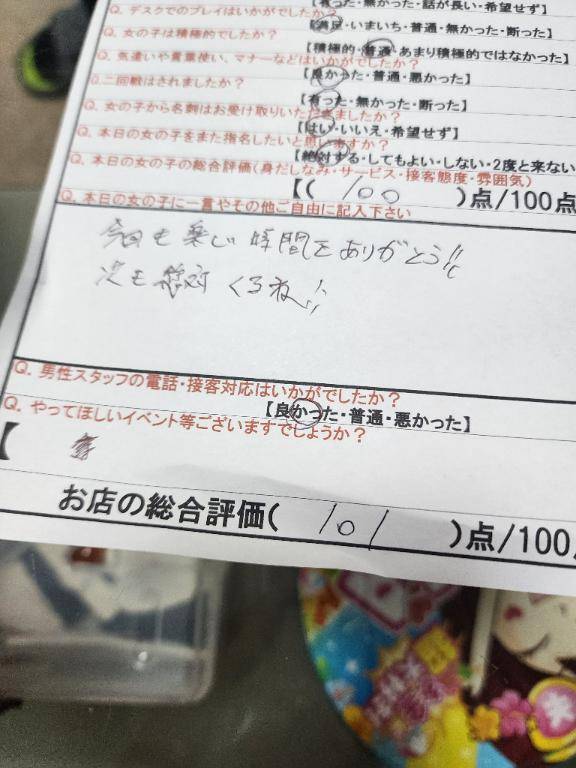 有った・無かった・話が長い・希望せず】
Q. デスクでのプレイはいかがでしたか？
【満足・いまいち・普通・無かった・断った】
Q. 女の子は積極的でしたか？
【積極的・普通・あまり積極的ではなかった】
Q. 気遣いや言葉使い、マナーなどはいかがでしたか？
【良かった・普通・悪かった】
Q. 二回戦はされましたか？
【有った・無かった・断った】
Q. 女の子から名刺はお受け取りいただきましたか？
【はい・いいえ・希望せず】
Q. 本日の女の子をまた指名したいと思いますか？
【絶対する・してもよい・しない・2度と来ない
Q. 本日の女の子の総合評価(身だしなみ・サービス・接客態度・雰囲気)
【( 100 )点/100点
Q. 本日の女の子に一言やその他ご自由に記入下さい
今日も楽しい時間をありがとう!!
次も絶対くるね!!
Q. 男性スタッフの電話・接客対応はいかがでしたか？
【良かった・普通・悪かった】
Q. やってほしいイベント等ございますでしょうか？
【
お店の総合評価( 101 )点/100